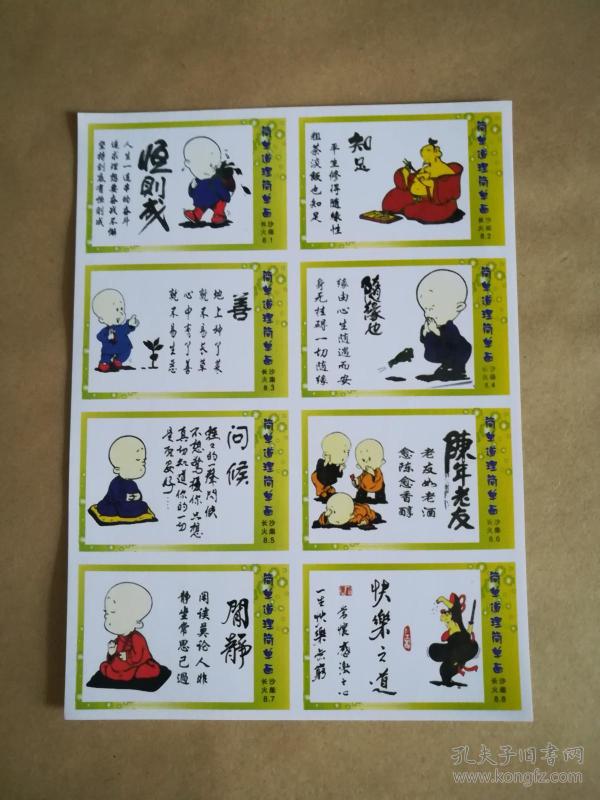 简单道理简单画
长沙
火柴
8.1
恒則成
人生一連串的奋斗
追求理想要奋战不懈
坚持到底有恒則成
简单道理简单画
长沙
火柴
8.2
知足
平生修得隨緣性
粗茶淡飯也知足
简单道理简单画
长沙
火柴
8.3
善
地上种了菜
就不易长草
心中有了善
就不易生恶
简单道理简单画
长沙
火柴
8.4
隨緣也
缘由心生随遇而安
身无挂碍一切随缘
简单道理简单画
长沙
火柴
8.5
问候
轻轻的一声问候
不想惊扰你只想
真切知道你的一切
是否安好…
简单道理简单画
长沙
火柴
8.6
陳年老友
老友如老酒
愈陈愈香醇
简单道理简单画
长沙
火柴
8.7
閒靜
闲谈莫论人非
静坐常思己過
简单道理简单画
长沙
火柴
8.8
快樂之道
常懷感激之心
一生快樂无窮
孔夫子旧书网
www.kongfz.com